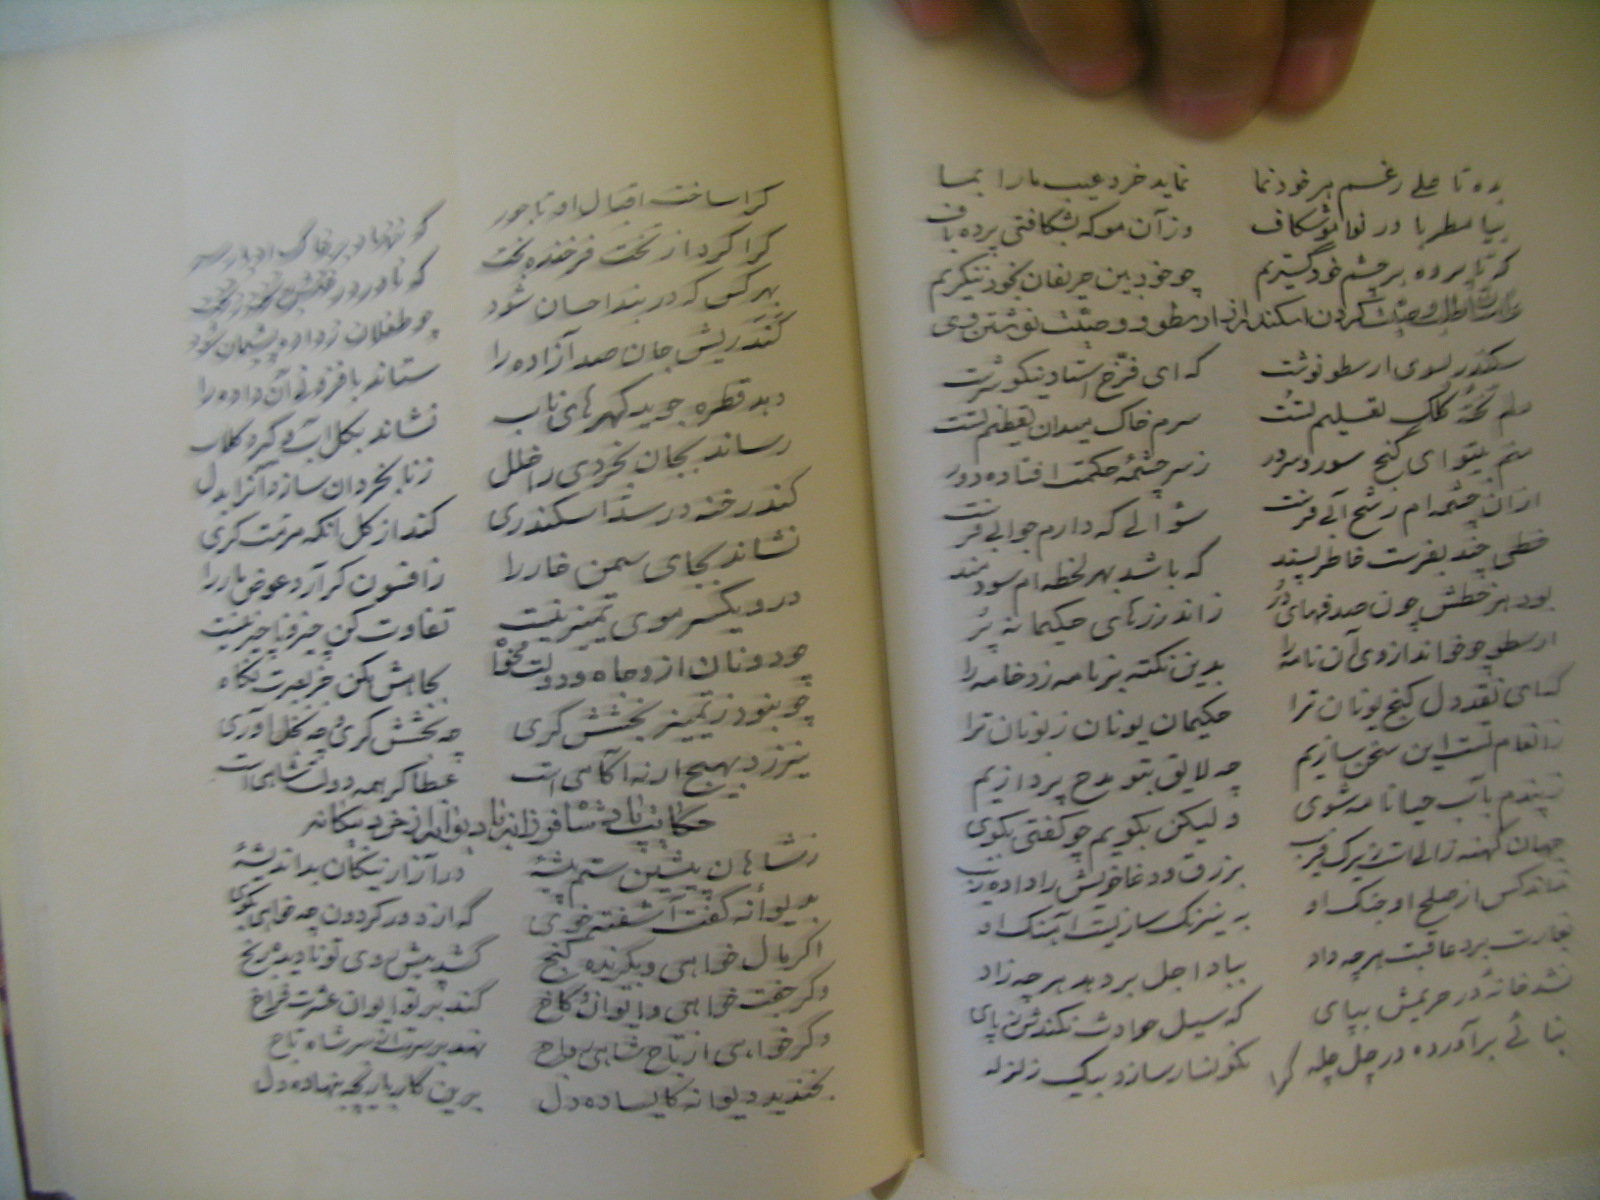 بده تا علی رغم هر خودنما نماید خرد عیب ما را بما
بیا مطربا در نوا موشکاف وز آن مو که بشکافتی پرده باف
که تا پرده بر چشم خود گستریم چو خودبین حریفان بخود ننگریم
کردن اسکندر از ارسطو و وصیّت نوشتن وی
سکندر بسوی ارسطو نوشت که ای فرّخ استاد نیکو سرشت
دلم تختهٔ کلک تعلیم تست سرم خاک میدان تعظیم تست
منم بیتو ای گنج ز سرچشمهٔ حکمت افتاده دور
از ان چشمه ام رشح آبی فرست سؤالی که دارم جوابی فرست
خطی چند بفرست خاطر پسند که باشد بهر لحظه ام سودمند
بود هر خطش چون صدفهای دُر ز اندرزهای حکیمانه پُر
ارسطو چو خواند از وی آن نامه را بدین نکته بر نامه زد خامه را
که ای نقد دل گنج یونان ترا حکیمان یونان زبونان ترا
ز انعام تست این سخن سازیم چه لایق بتو مدح پردازیم
ز پندم بآب حیا نامه شوی ولیکن بگویم چو گفتی بگوی
جهان کهنه زالیست زیرک فریب بزرق و دغا خویش را داده زیب
نماند کس از صلح او جنک او به نیرنک سازیست آهنک او
بغارت برد عاقبت هر چه داد بباد اجل بر دهد هر چه زاد
نشد خانهٔ در حریمش بپای که سیل حوادث نکندش ز پای
بنائی برآورده در چل چله نگونسار سازد بیک زلزله
کرا ساخت اقبال او تاجور که ننهاد بر خاک ادبار سر
کرا کرد از تخت فرخنده بخت که ناورد
بهر کس که در بند احسان شود چو طفلان ز داده پشیمان شود
کند ریش جان صد آزاده را ستاند بافزونی آن داده را
دهد قطره جوید گهرهای ناب نشاند بگل آب و گیرد گلاب
رساند بجان بخردی را خلل ز نابخردان سازد آنرا بدل
کند رخنه در سدّ اسکندری کند از گل انگه مرمّت گری
نشاند بجای سمن خار را ز افسون گر آرد عوض مار را
درو یکسر موی تمییز نیست تفاوت کن چیز و ناچیز نیست
چو دونان ازو جاه و دولت مخواه بکاهش مکن جز بعبرت نگاه
چو نبود ز تمییز بخشش گری چه بخشش گری چه بخل آوری
نیرزد بهیچ ار نه آگاهی است عطا گر همه دولت شاهی است
حکایت پادشاه فرزانه با دیوانه از خرد بیگانه
ز شاهان پیشین ستم پیشهٔ در آزار نیکان بد اندیشهٔ
بدیوانه گفت آشفته خوی که از دور گردون چه خواهی بگوی
اگر مال خواهی و یکزنده گنج کشد پیش روی تو نادیده رنج
وگر جفت خواهی و ایوان و کاخ کند بر تو ایوان عشرت فراخ
وگر خواهی از تاج شاهی رواج نهد بر سرت از سر شاه تاج
بخندید دیوانه کای ساده دل برین کار بازیچه بنهاده دل